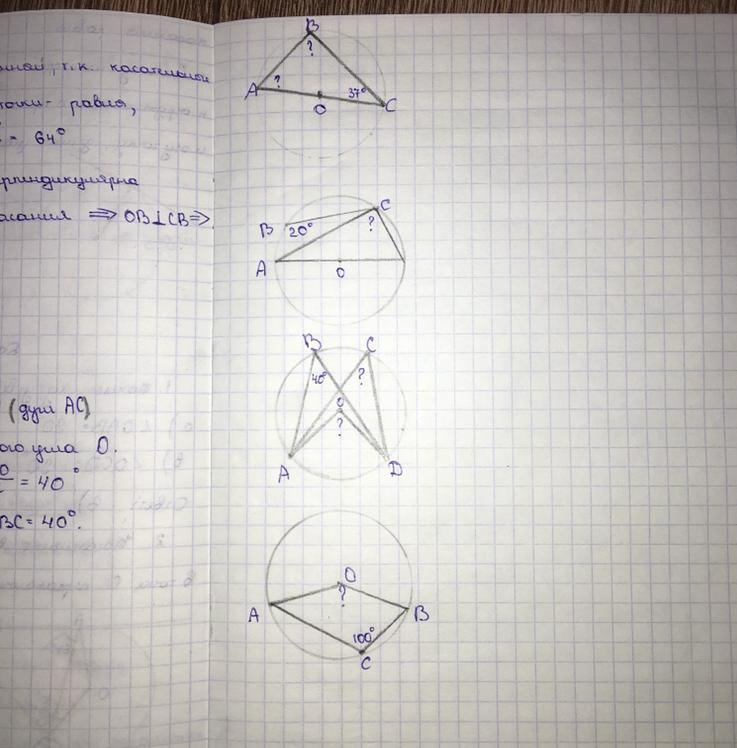 т.к. касательной
точки- равна,
= 64°
перпиндикулярна
касания ⇒ OB⊥CB⇒
(дуги AC)
ого угла O.
= 40°
BC = 40°.
B
?
A ? 37° C
O
C
B 20° ?
A O
B C
40° ?
O
?
A D
O
A ? B
100°
C